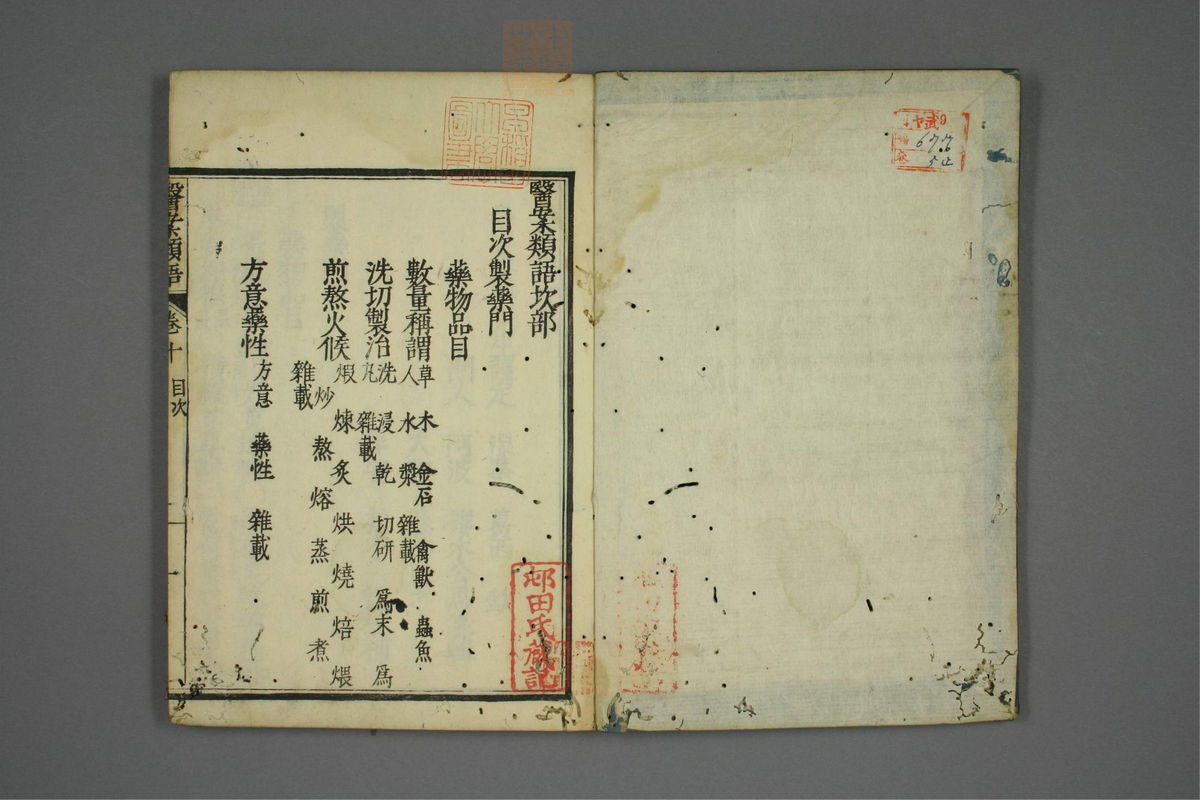 677
醫案類語坎部
目次製藥門
藥物品目
數量稱謂
草 木 金石 禽獸 蟲魚
人 水 漿 雜載
洗切製治
洗 浸 乾 切研 爲末 爲
丸 雜載
煎熬火候
煆 煉 炙 烘 燒 焙 煨
炒 熬 熔 蒸 煎 煮
雜載
方意藥性
方意 藥性 雜載
醫案類語 卷十 目次
邨田氏藏記